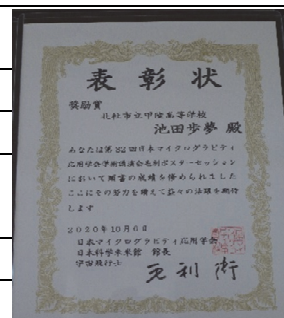 表彰状
奨励賞
北杜市立甲陵高等学校
池田歩夢 殿
あなたは第32回日本マイクログラビティ
応用学会学術講演会毛利ポスターセッション
において頭書の成績を修められました
ここにその努力を讃えて益々の活躍を期待
します
2020年10月6日
日本マイクログラビティ応用学会
日本科学未来館 館長
宇宙飛行士
毛利 衛